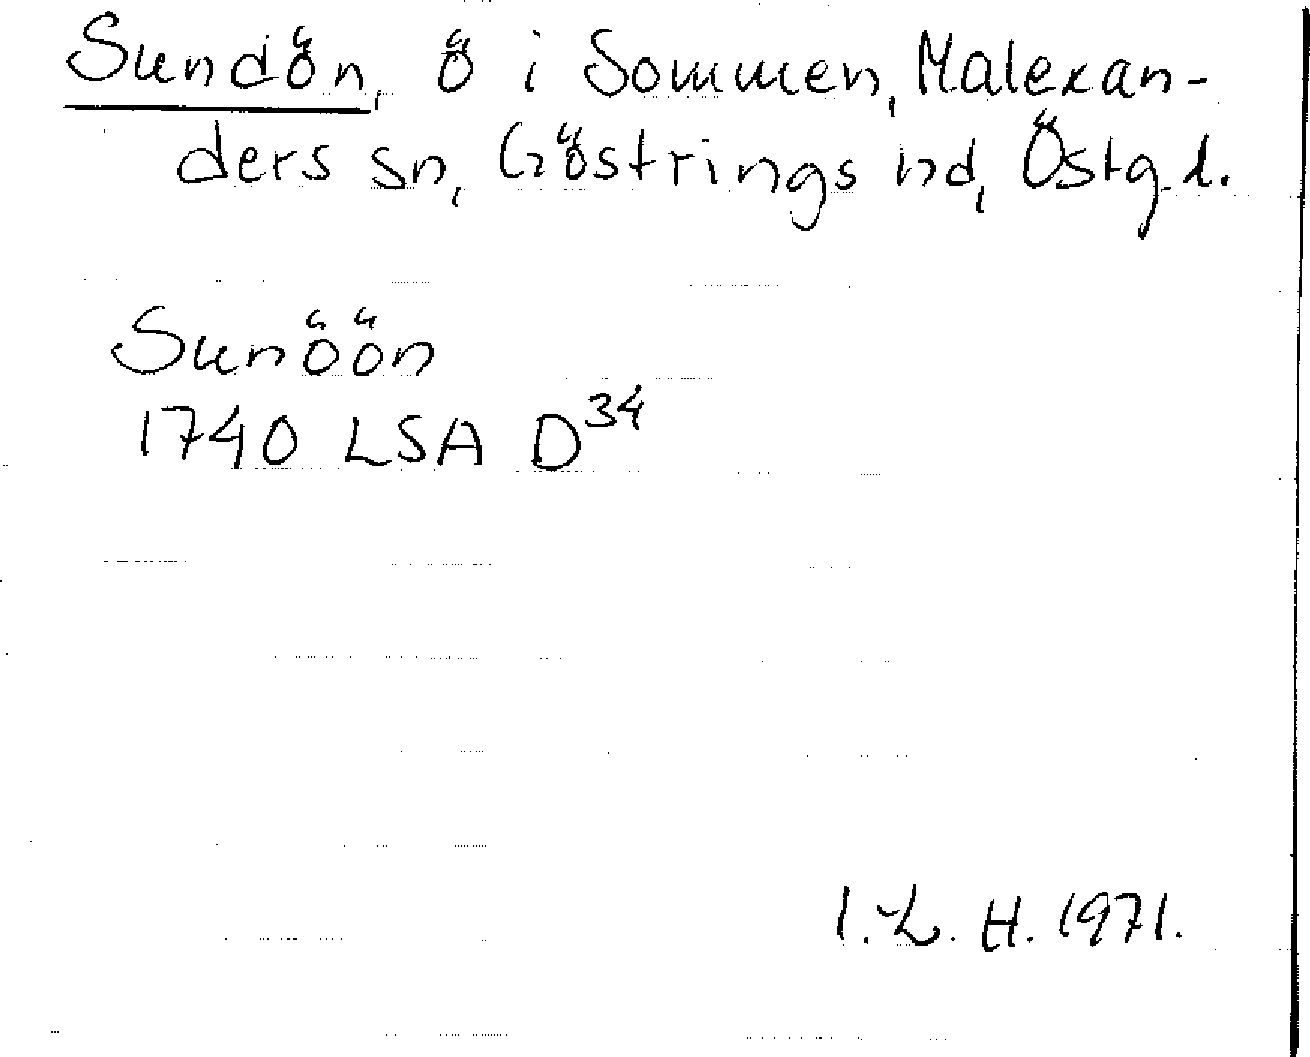 Sundön, ö i Sommen, Malexan-
ders sn, Göstrings hd, Östg.l.
Sunöön
1740 LSA D34
I.L. H. 1971.